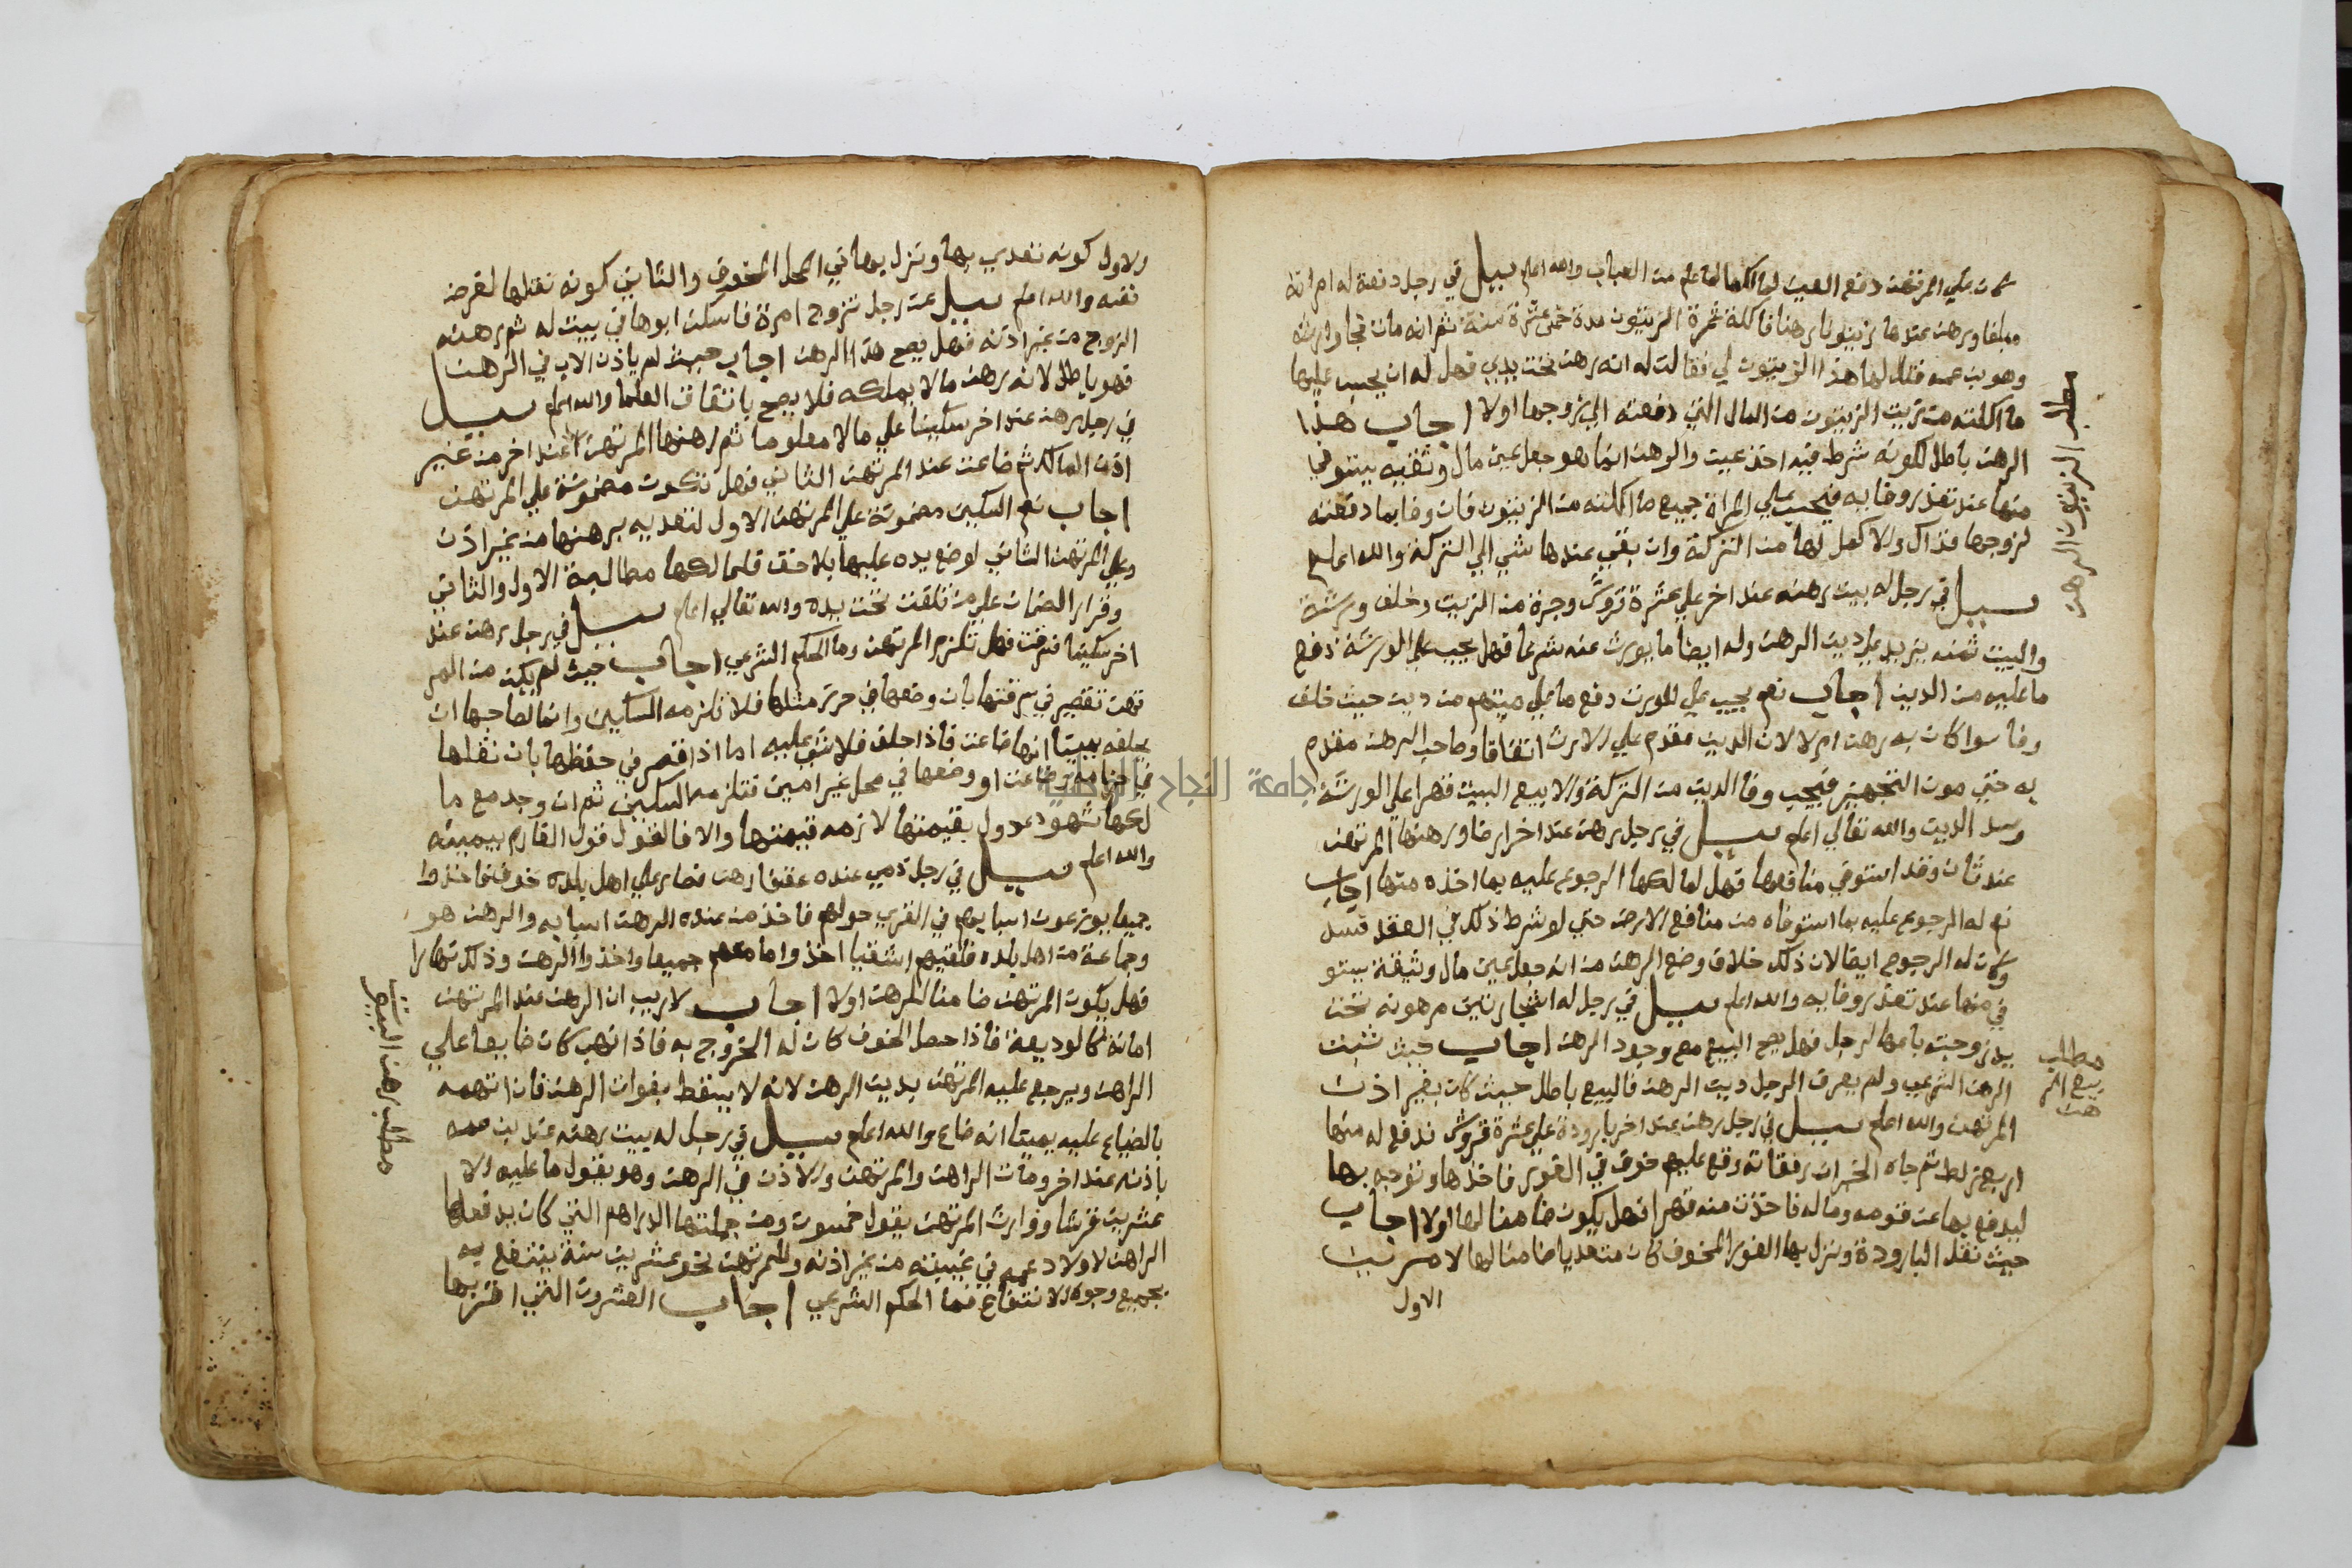 كان علي المرتهن دفع العين لمالكها لما علم من العباب والله اعلم سيل في رجل دفعة له امراته
مبلغا ورهن عندها زيتونا رهنا فاكلة ثمرة الزيتون مدة خمس عشرة سنة ثم انه مات فجا وارثه
وهو بن عمه فقال لها هذا الزيتون لي فقالت له انه رهن تحت يدي فهل له ان يحسب عليها
ما اكلته من زيت الزيتون من المال الذي دفعته الي زوجها اولا اجاب هذا
الرهن باطل لكونه شرط فيه اخذ عين والرهن انما هو جعل عين مال وثقيه يستوفي
منها عند تعذر وفا به فيحسب علي المراة جميع ما اكلته من الزيتون فان وفا بما دفعته
لزوجها فذاك والا كمل لها من التركة وان بقي عندها شي الي التركة والله اعلم
سيل في رجل له بيت رهنه عند اخر علي عشرة قروش وجرة من الزيت وخلف ورثة
والبيت ثمنه يزيد علي دين الرهن وله ايضا ما يورث عنه شرعا فهل يجب علي الورثة دفع
ما عليه من الدين اجاب نعم يجب علي المورث دفع ما علي ميتهم من دين حيث خلف
وفا سوا كان به رهن ام لا لان الدين مقدم علي الارث اتفاقا وصاحب الرهن مقدم
به حتي موت التجهيز فيجب وفا الدين من التركة والا بيع البيت قهرا علي الورثة
وسد الدين والله تعالي اعلم سيل في رجل رهن عند اخر ارضا ورهنها المرتهن
عند ثان وقد استوفي منافعها فهل لمالكها الرجوع عليه بما اخذه منها اجاب
نعم له الرجوع عليه بما استوفاه من منافع الارض حتي لو شرط ذلك في العقد فسد
وكان له الرجوع ايضا لان ذلك خلاف وضع الرهن من انه جعل عين مال وثيقة يستو
في منها عند تعذر وفا به والله اعلم سيل في رجل له اشجار تين مرهونه تحت
يد زوجته باعها لرجل فهل يصح البيع مع وجود الرهن اجاب حيث ثبت
الرهن الشرعي ولم يعرف الرجل دين الرهن فالبيع باطل حيث كان بغير اذن
المرتهن والله اعلم سيل في رجل رهن عند اخر بارودة علي عشرة قروش ندفع له منها
اربع زلط ثم جاه الخبر ان رفقاته وقع عليهم خوف في الغور فاخذها وتوجه بها
ليدفع بها عن قومه وماله فاخذت منه قهرا فهل يكون ضامنا لها اولا اجاب
حيث نقل البارودة ونزل بها الغور المخوف كان متعديا ضامنا لها لامرين
الاول
مطلب الزيتون الرهن
مطلب
بيع المر
هن
ولاول كونه تعدي بها ونزل بها في المحل المخوف والثاني كونه نقلها لغرض
نفسه والله اعلم سيل عن رجل تزوج امرة فاسكن ابوها في بيت له ثم رهنه
الزوج من غير اذنه فهل يصح هذا الرهن اجاب حيث لم ياذن الاب في الرهن
فهو باطل لانه رهن مالا يملكه فلا يصح باتفاق العلما والله اعلم سيل
في رجل رهن عند اخر سكينا علي مالا معلوما ثم رهنها المرتهن عند اخر من غير
اذن المالك ثم ضاعت عند المرتهن الثاني فهل تكون مضمونة علي المرتهن
اجاب نعم السكين مضمونة علي المرتهن الاول لتعديه برهنها من غير اذن
وعلي المرتهن الثاني لوضع يده عليها بلا حق فلمالكها مطالبة الاول والثاني
وقرار الضمان علي من تلفت تحت يده والله تعالي اعلم سيل في رجل رهن عند
اخر سكينا فسرقت فهل تلزم المرتهن وما الحكم الشرعي اجاب حيث لم يكن من المر
تهن تقصير في سرقتها بان وضعها في حرز مثلها فلا تلزمه السكين وانما لصاحبها ان
يحلفه يمينا انها ضاعت فاذا حلف فلا شي عليه اما اذا قصر في حفظها بان نقلها
في حزامه وضاعت او وضعها في محل غير امين فتلزمه السكين ثم ان وجد مع ما
لكها شهود عدول بقيمتها لازمه قيمتها والا فالقول قول الغارم بيمينه
والله اعلم سيل في رجل ذمي عنده عقق رهن فصار علي اهل بلده خوف فاخذوا
جميعا يوزعون اسبابهم في القري حولهم فاخذ من عنده الرهن اسبابه والرهن هو
وجماعة من اهل بلده فلقيهم اشقيا اخذوا ما معهم جميعا واخذوا الرهن وذلك نهارا
فهل يكون المرتهن ضامنا للرهن اولا اجاب لاريب ان الرهن عند المرتهن
امانة كالوديعة فاذا حصل الخوف كان له الخروج به فاذا نهب كان ضايعا علي
الراهن ويرجع عليه المرتهن بدين الرهن لانه لا يسقط بفوات الرهن فان اتهمه
بالضياع عليه يمينا انه ضاع والله اعلم سيل في رجل له بيت رهنه عند بن عمه
باذنه عند اخر ومات الراهن والمرتهن والاذن في الرهن وهو يقول ما عليه الا
عشرين قرشا ووارث المرتهن يقول خمسون ومن جملتها الدراهم التي كان يدفعها
الراهن لاولاد عمه في غيبته من غير اذنه وللمرتهن نحو عشرين سنة ينتفع به
بجميع وجوه الانتفاع فما الحكم الشرعي اجاب العشرون التي اقر بها
مطلب رهن البيت
جامعة النجاح الوطنية